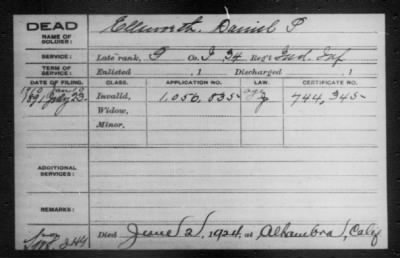 DEAD
NAME OF SOLDIER:
Ellsworth, Daniel P
SERVICE:
Late rank, P Co. I 34 Reg't Ind. Inf
TERM OF SERVICE:
Enlisted , 1 Discharged , 1
DATE OF FILING. CLASS. APPLICATION NO. LAW. CERTIFICATE NO.
1891 July 23. Invalid, 1,050,835 744,345
Widow,
Minor,
ADDITIONAL SERVICES:
REMARKS:
Died June 2, 1924, at Alhambra, Calif